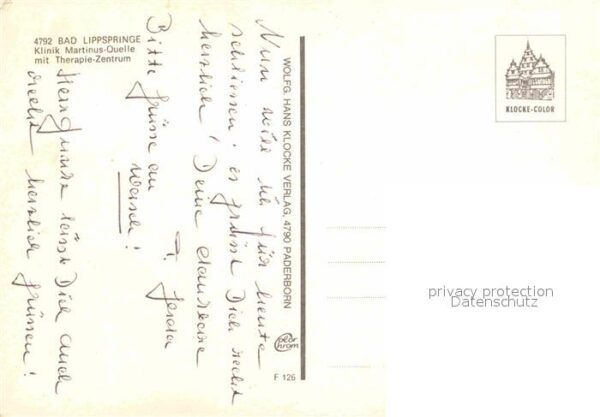 4792 BAD LIPPSPRINGE
Klinik Martinus-Quelle
mit Therapie-Zentrum
Nun will ich für heute
schliessen! es grüsst Dich recht
herzlich! Deine
Bitte grüsse am
T.
Herz lässt Dich auch
recht herzlich grüssen!
WOLFG. HANS KLOCKE VERLAG, 4790 PADERBORN
F 126
KLOCKE-COLOR
privacy protection
Datenschutz